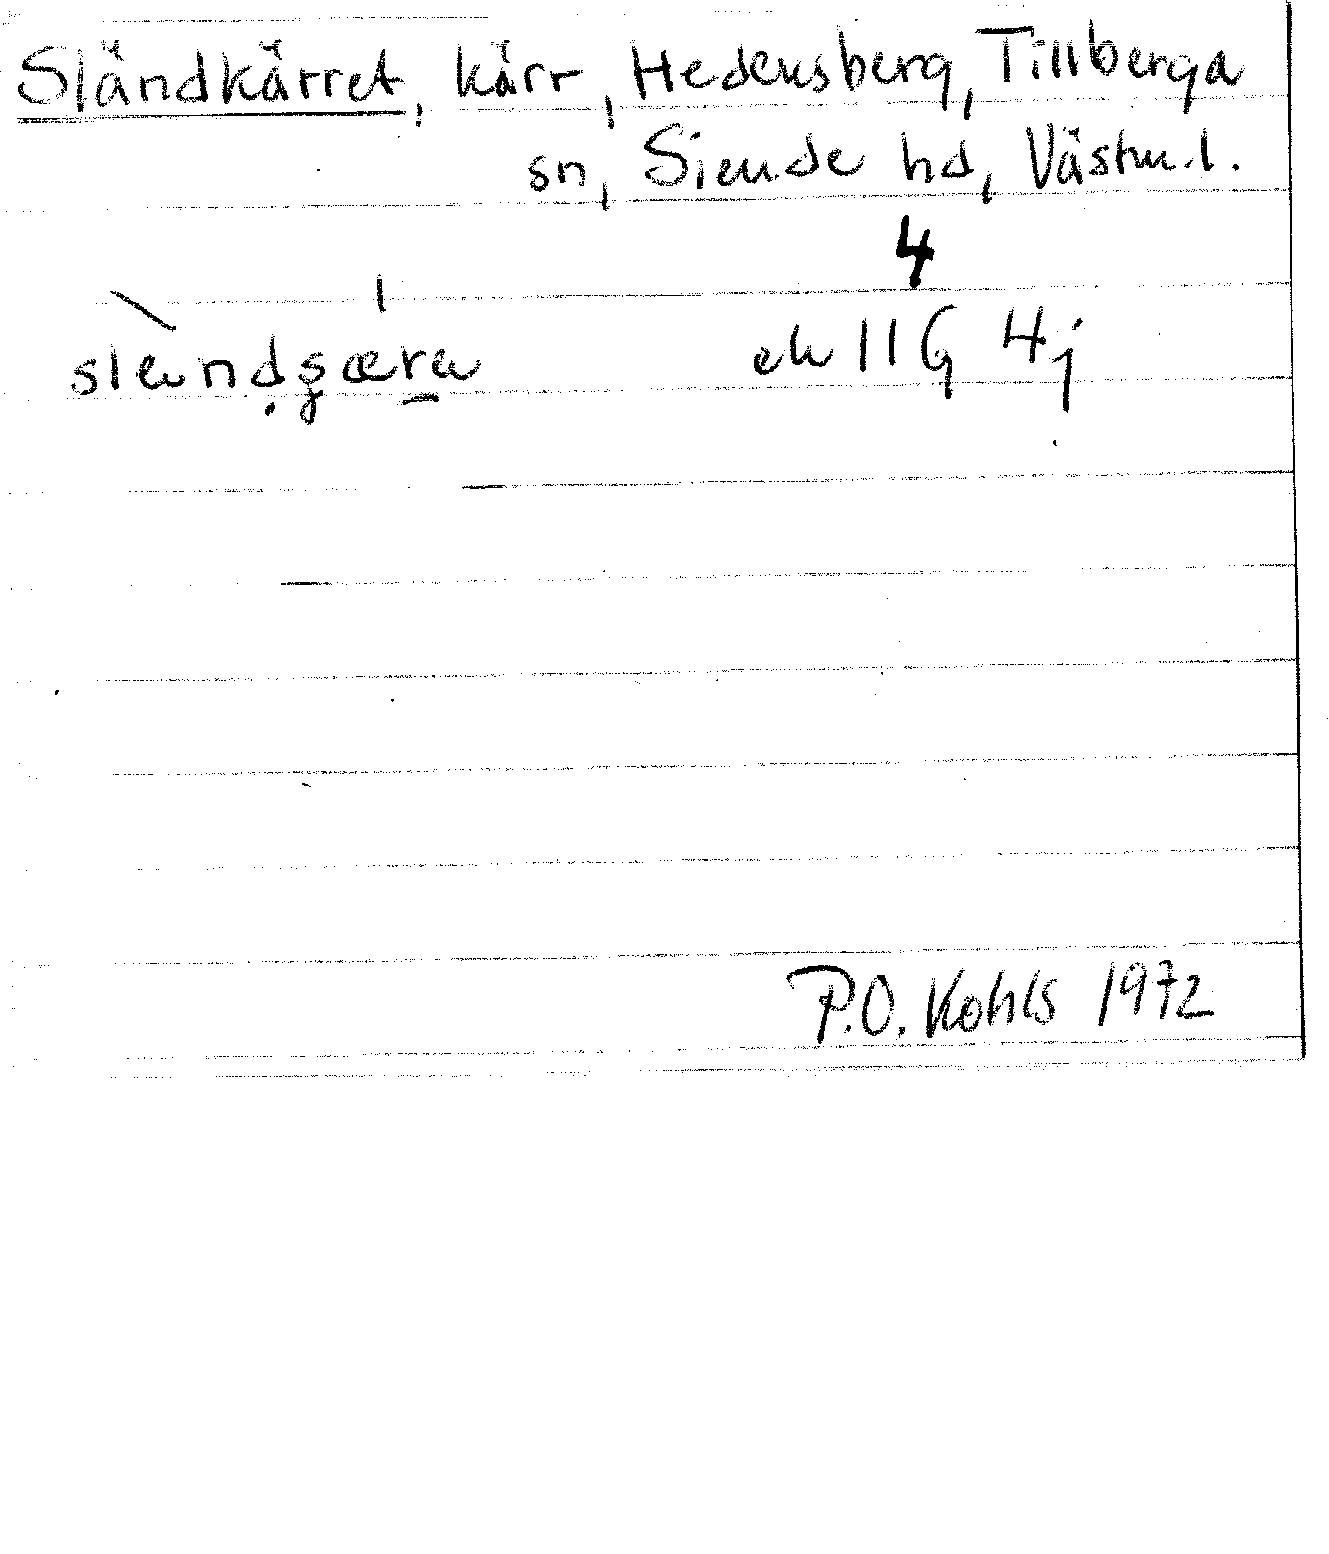 Sländkärret, kärr, Hedensberg, Tillberga
sn, Siende hd, Västm.l.
4
ek 11G 4j
P.O. Kohls 1972